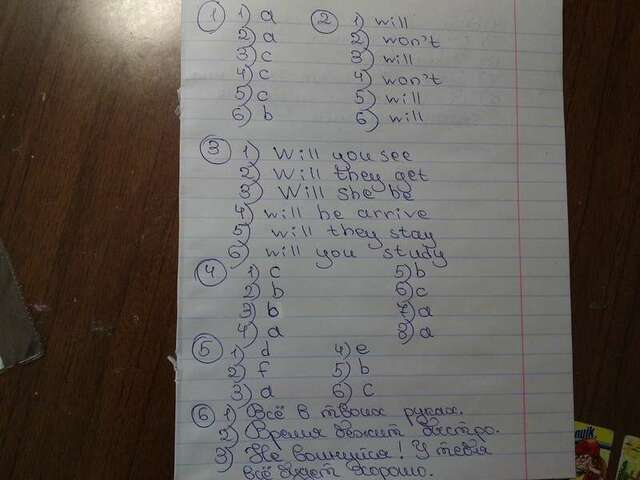 1 1) a 2 1) will
2) a 2) won't
3) c 3) will
4) c 4) won't
5) c 5) will
6) b 6) will
3 1) Will you see
2) Will they get
3) Will she be
4) will he arrive
5) will they stay
6) will you study
4 1) c 5) b
2) b 6) c
3) b 7) a
4) a 8) a
5 1) d 4) e
2) f 5) b
3) a 6) c
6 1) Всё в твоих руках.
2) Время бежит быстро.
3) Не волнуйся! У тебя
всё будет хорошо.